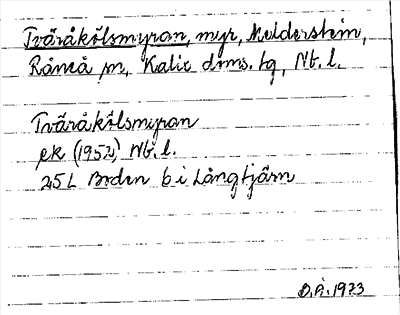 Tväråkölsmyran, myr, Melderstein,
Råneå sn, Kalix doms. tg, Nb. l.
Tväråkölsmyran
ek (1952) Nb. l.
25 L Boden 6 i Långtjärn
D.Å. 1973